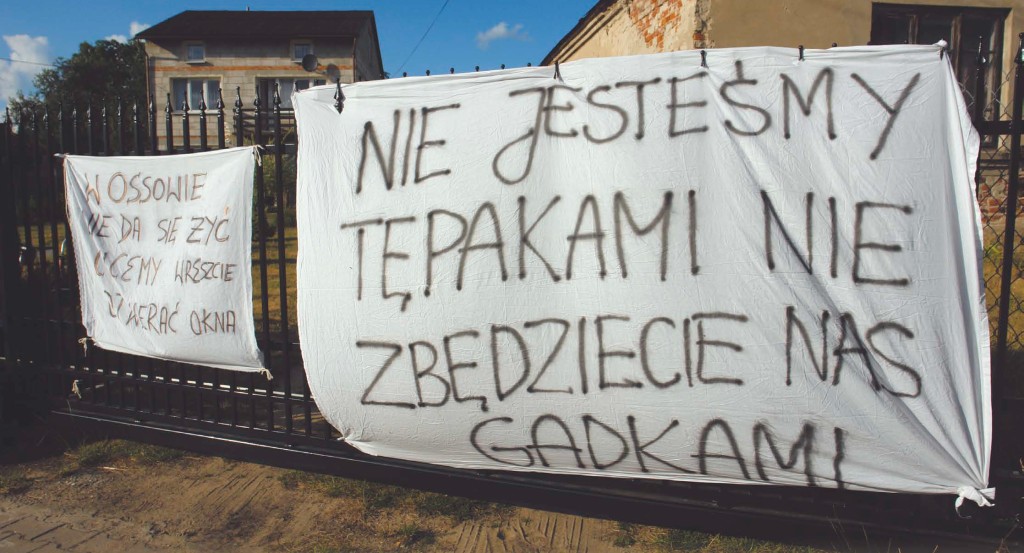 W OSSOWIE
NIE DA SIĘ ŻYĆ
CHCEMY WRESZCIE
OTWIERAĆ OKNA
NIE JESTEŚMY
TĘPAKAMI NIE
ZBĘDZIECIE NAS
GADKAMI